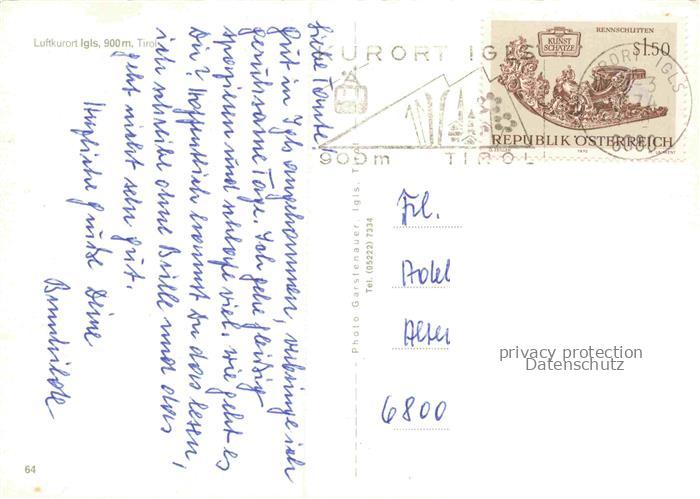 Luftkurort Igls, 900 m, Tirol
Liebe Tante,
gut in Igls angekommen, verbringe ich
geruhsame Tage. Ich gehe fleißig
spazieren und schlafe viel. Wie geht es
Dir? Hoffentlich kannst Du das lesen,
ich schreibe ohne Brille und das
geht nicht sehr gut.
Herzliche Grüße Deine
64
Photo Gerstenauer, Igls, Tirol
Tel. (05222) 7334
KURORT IGLS
900m TIROL
KUNST
SCHÄTZE
RENNSCHLITTEN
S1.50
REPUBLIK ÖSTERREICH
1972
Frl.
6800
privacy protection
Datenschutz